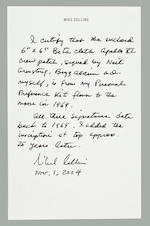 MIKE COLLINS
I certify that the enclosed
6" x 6" Beta cloth Apollo XI
crew patch, signed by Neil
Armstrong, Buzz Aldrin and
myself, is from my Personal
Preference Kit flown to the
moon in 1969.
All three signatures date
back to 1969. I added the
inscription at top approx.
25 years later.
Michael Collins
Nov. 1, 2004